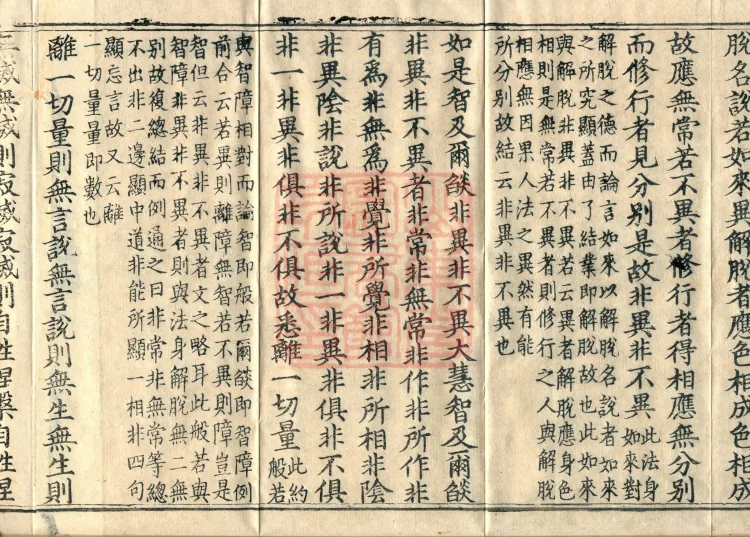 脫名說若如來異解脫者應色相成色相成
故應無常若不異者修行者得相應無分別
而修行者見分別是故非異非不異
此法身
如來對
解脫之德而論言如來以解脫名說者如來
之所究顯蓋由了結業即解脫故也此如來
與解脫非異非不異若云異者解脫應身色
相則是無常若不異者則修行之人與解脫
相應無因果人法之異然有能
所分別故結云非異非不異也
如是智及爾燄非異非不異大慧智及爾燄
非異非不異者非常非無常非作非所作非
有為非無為非覺非所覺非相非所相非陰
非異陰非說非所說非一非異非俱非不俱
非一非異非俱非不俱故悉離一切量
此約
般若
與智障相對而論智即般若爾燄即智障例
前合云若異則離障無智若不異則障豈是
智但云非異非不異者文之略耳此般若與
智障非異非不異者則與法身解脫無二無
別故復總結而例通之曰非常非無常等總
不出非二邊顯中道非能所顯一相非四句
顯忘言故又云離
一切量量即數也
離一切量則無言說無言說則無生無生則
無滅無滅則寂滅寂滅則自性涅槃自性涅